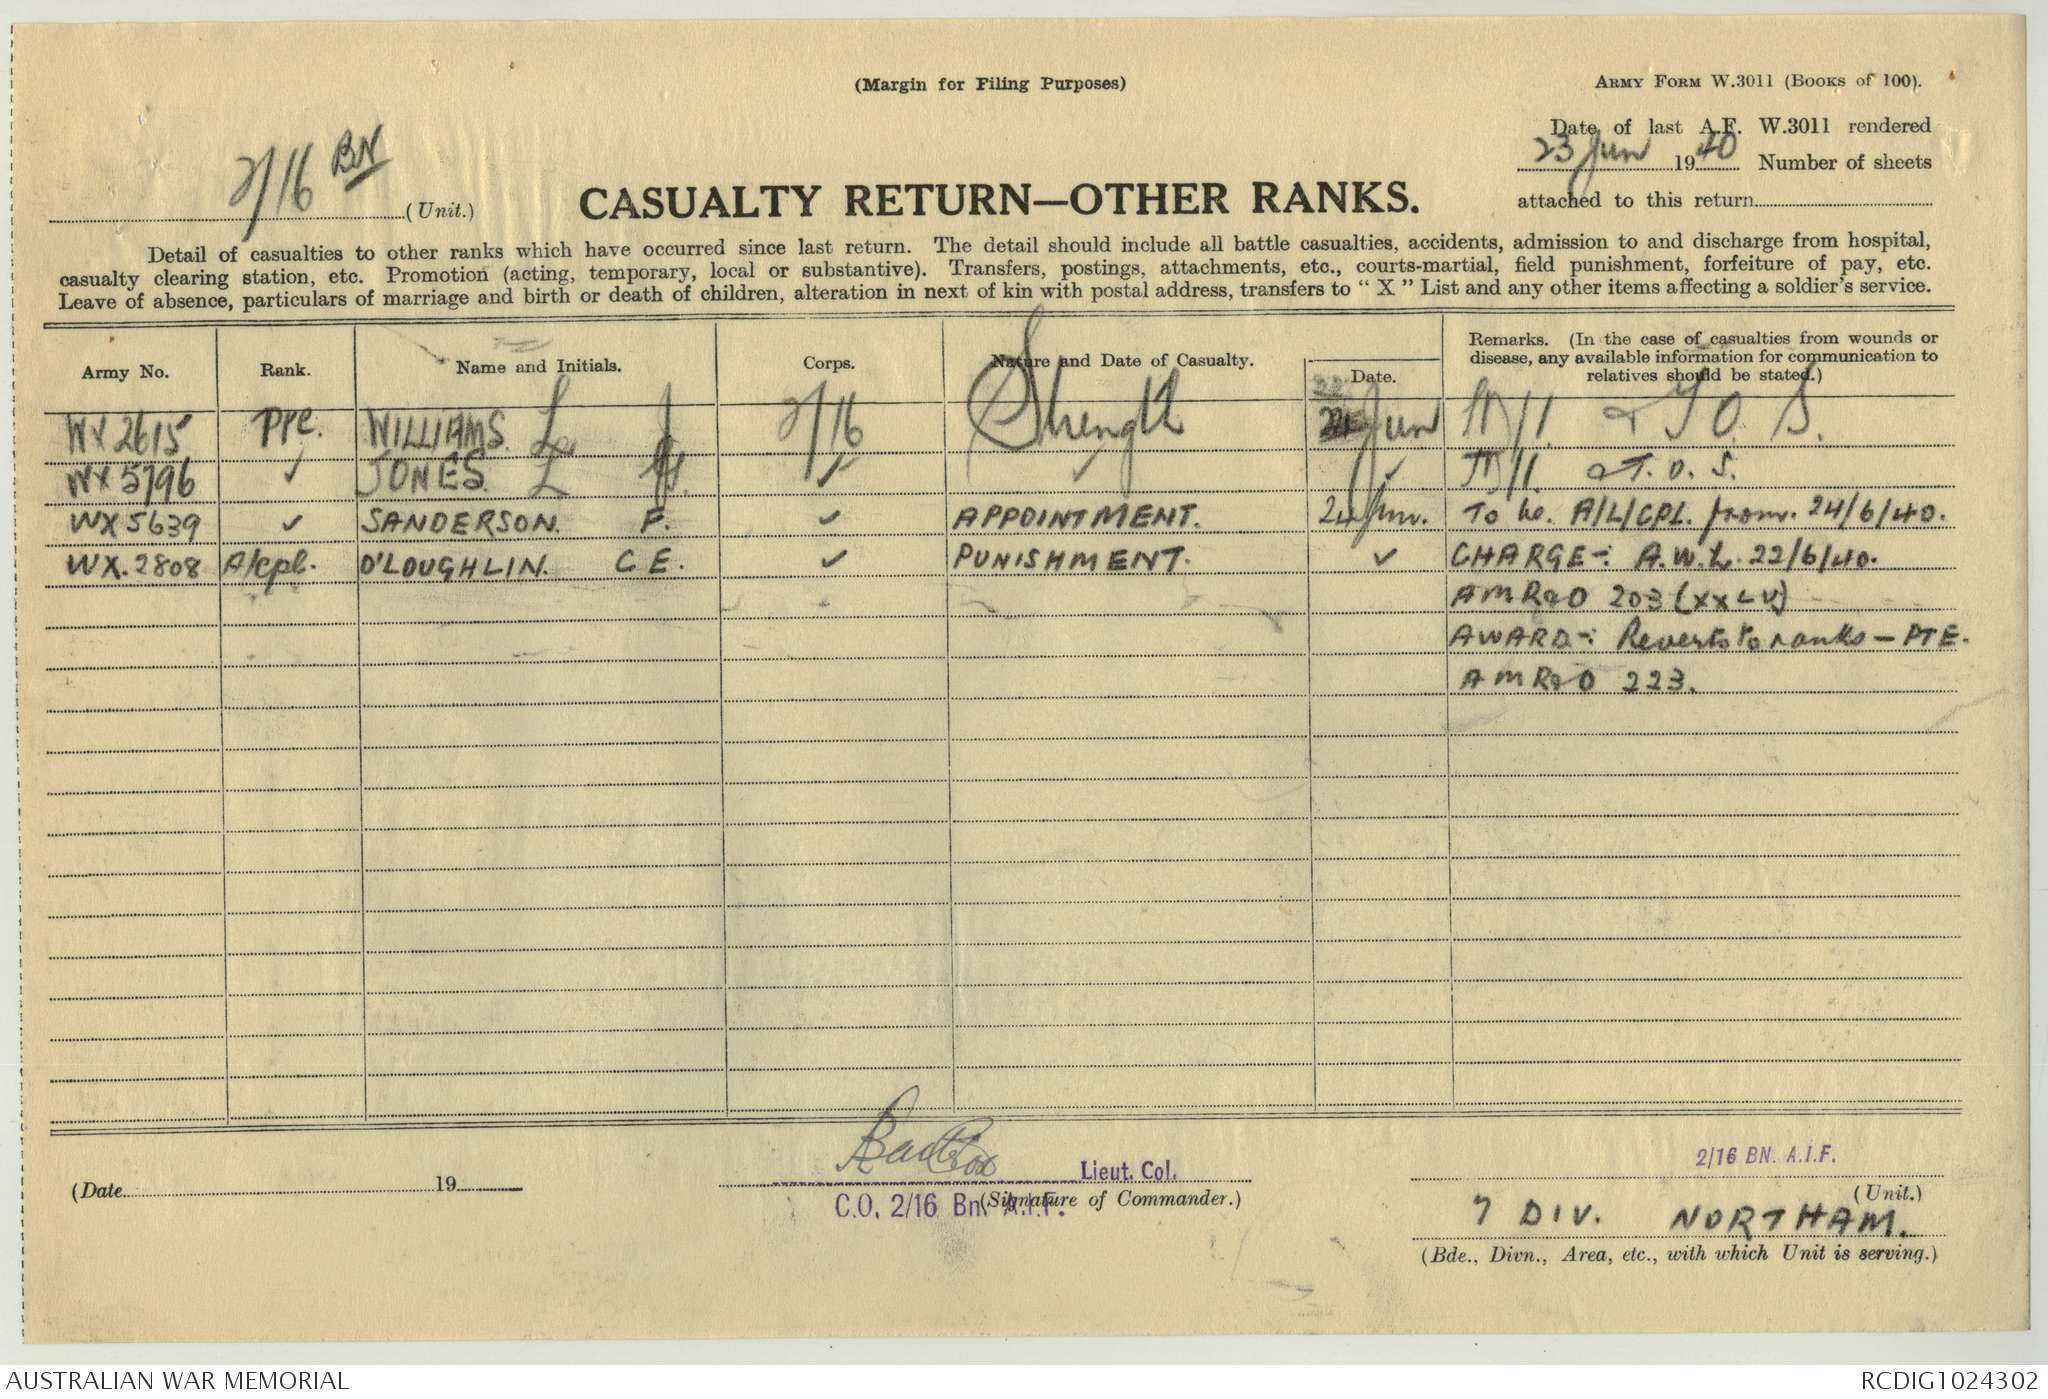 (Margin for Filing Purposes)
ARMY FORM W.3011 (BOOKS of 100).
Date of last A.F. W.3011 rendered
23 Jun 1940 Number of sheets
attached to this return
2/16 BN (Unit.)
CASUALTY RETURN—OTHER RANKS.
Detail of casualties to other ranks which have occurred since last return. The detail should include all battle casualties, accidents, admission to and discharge from hospital,
casualty clearing station, etc. Promotion (acting, temporary, local or substantive). Transfers, postings, attachments, etc., courts-martial, field punishment, forfeiture of pay, etc.
Leave of absence, particulars of marriage and birth or death of children, alteration in next of kin with postal address, transfers to "X" List and any other items affecting a soldier's service.
Army No. Rank. Name and Initials. Corps. Nature and Date of Casualty. Date. Remarks. (In the case of casualties from wounds or
disease, any available information for communication to
relatives should be stated.)
WX 2615 Pte. WILLIAMS. L 2/16 Strength Jun T.O.S.
WX 5796 ✓ JONES. L ✓ ✓ ✓ T.O.S.
WX 5639 ✓ SANDERSON. F. ✓ APPOINTMENT. 24 Jun. To be. A/L/CPL. from. 24/6/40.
WX.2808 A/cpl. O'LOUGHLIN. C E. ✓ PUNISHMENT. ✓ CHARGE-: A.W.L. 22/6/40.
AMR&O 203
AWARD-: Reverts to ranks — PTE.
AMR&O 223.
(Date 19
Lieut. Col.
(Signature of Commander.)
C.O. 2/16 Bn. A.I.F.
2/16 BN. A.I.F.
(Unit.)
7 DIV. NORTHAM.
(Bde., Divn., Area, etc., with which Unit is serving.)
AUSTRALIAN WAR MEMORIAL
RCDIG1024302